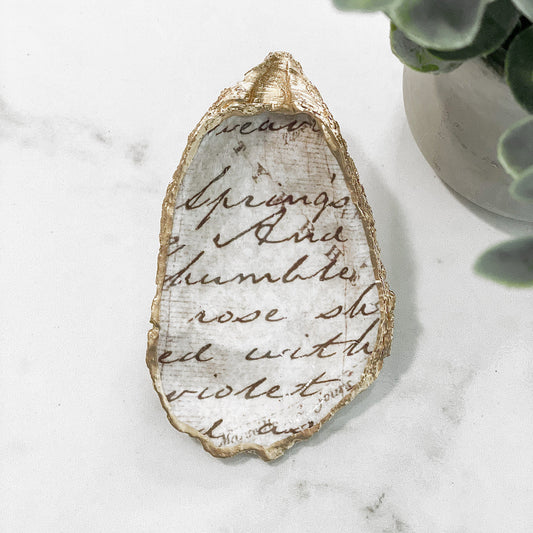 weavin
Spring's
And
humble
rose sh
ed with
violet